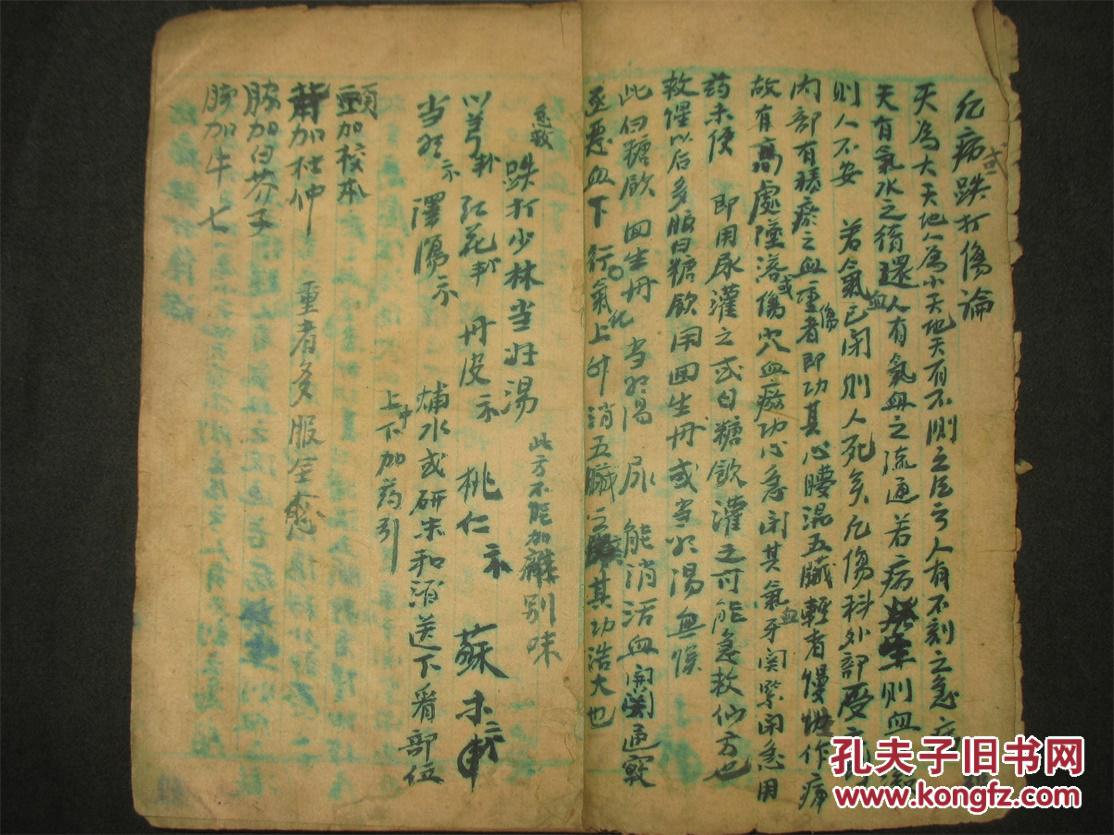 凡病跌打傷論
天為大天地人為小天地天有不測之 人有不刻之急
天有氣水之循環人有氣血之流通若病 生則血
則人不安 若氣已閉則人死矣凡傷科外部
內部有積瘀之血重者即功其心朦混五臟輕者慢 作病
故有高處墜落或傷穴血瘀功心急閉其氣血牙関緊閉急用
药未便 即用尿灌之或白糖飲灌之可能急救仙方也
救惺以后多服白糖飲用回生丹或当归湯無悞
此白糖飲 回生丹 当归湯 尿 能消活血開関通竅
血下行氣上升化消五臟之 其功浩大也
急救
跌打少林当归湯 此方不能加 别味
川芎 紅花 丹皮 桃仁 蘇木
当归 澤瀉 煎水或研末和酒送下看部位
上中下加药引
頭加校本
背加杜仲 重者多服全愈
脇加白芥子
加牛七
孔夫子旧书网
www.kongfz.com